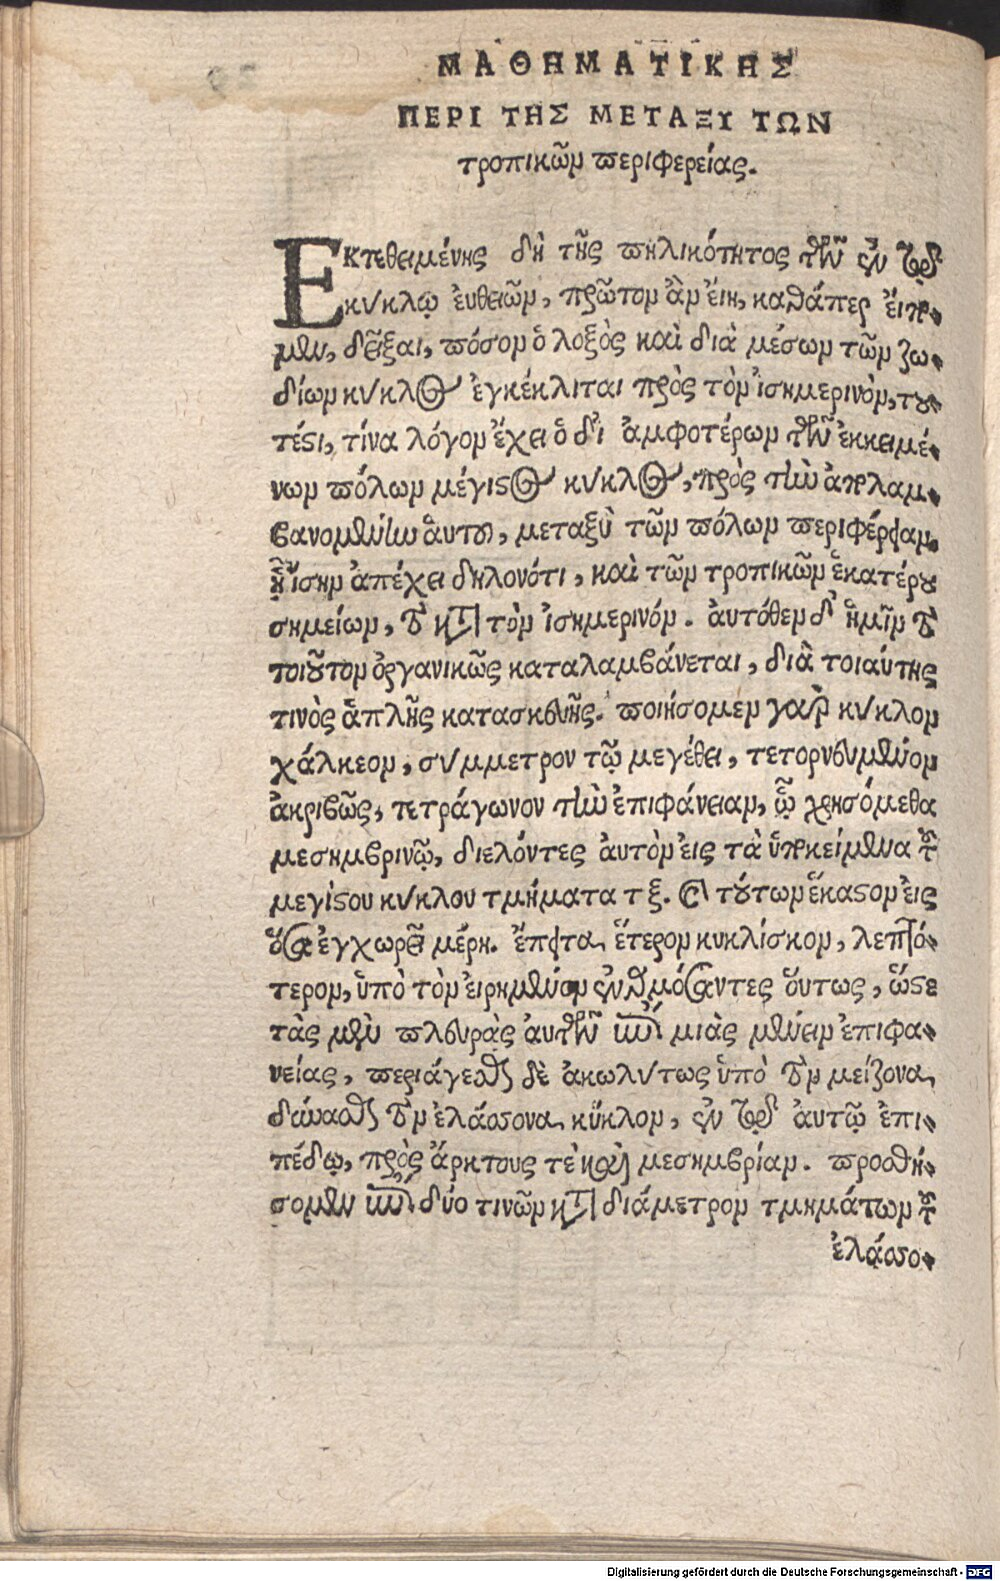 ΜΑΘΗΜΑΤΙΚΗΣ
ΠΕΡΙ ΤΗΣ ΜΕΤΑΞΥ ΤΩΝ
τροπικῶν περιφερείας.
Εκτεθειμένης δὴ τῆς πηλικότητος τῶν ἐν τῷ
κύκλῳ ἐυθειῶν, πρῶτον ἂν ἔιη, καθάπερ ἔιπο-
μεν, δεῖξαι, πόσον ὁ λοξὸς καὶ διὰ μέσων τῶν ζω-
δίων κύκλος ἐγκέκλιται πρὸς τὸν ἰσημερινὸν, του-
τέστι, τίνα λόγον ἔχει ὁ δι' ἀμφοτέρων τῶν ἐκκειμέ-
νων πόλων μέγιστος κύκλος, πρὸς τὴν ἀπολαμ-
βανομένην ἀυτοῦ, μεταξὺ τῶν πόλων περιφέρειαν,
ᾗ ἴσην ἀπέχει δηλονότι, καὶ τῶν τροπικῶν ἑκατέρου
σημείων, τὸ κατὰ τὸν ἰσημερινόν. ἀυτόθεν δ' ἡμῖν τὸ
τοιοῦτον ὀργανικῶς καταλαμβάνεται, διὰ τοιαύτης
τινὸς ἁπλῆς κατασκευῆς. ποιήσομεν γὰρ κύκλον
χάλκεον, σύμμετρον τῷ μεγέθει, τετορνευμένον
ἀκριβῶς, τετράγωνον τὴν ἐπιφάνειαν, ᾧ χρησόμεθα
μεσημβρινῷ, διελόντες ἀυτὸν εἰς τὰ ὑποκείμενα τοῦ
μεγίστου κύκλου τμήματα τξ. καὶ τούτων ἕκαστον εἰς
ὅσα ἐγχωρεῖ μέρη. ἔπειτα ἕτερον κυκλίσκον, λεπτό-
τερον, ὑπὸ τὸν ἐιρημένον ἐναρμόσαντες ὅυτως, ὥστε
τὰς μὲν πλευρὰς αυτῶν ἐπὶ μιᾶς μένειν ἐπιφα-
νείας, περιάγεσθαι δὲ ἀκωλύτως ὑπὸ τὸν μείζονα
δύνασθαι τὸν ἐλάσσονα κύκλον, ἐν τῷ ἀυτῷ ἐπι-
πέδῳ, πρὸς ἄρκτους τὲ καὶ μεσημβρίαν. προσθή-
σομεν ἐπὶ δύο τινῶν κατὰ διάμετρον τμημάτων τοῦ
ἐλάσσο-
Digitalisierung gefördert durch die Deutsche Forschungsgemeinschaft - DFG